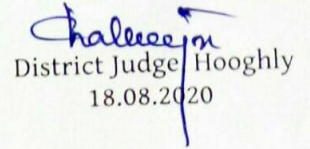 District Judge Hooghly
18.08.2020